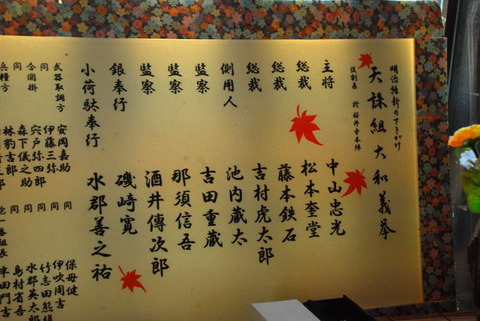 明治維新のさきがけ
天誅組大和義挙
於 桜井寺本陣
主将 中山忠光
総裁 松本奎堂
総裁 藤本鉄石
総裁 吉村虎太郎
側用人 池内蔵太
監察 吉田重蔵
監察 那須信吾
監察 酒井傳次郎
銀奉行 磯崎寛
小荷駄奉行 水郡善之祐
武器取調方 安岡嘉助
同 伊藤三弥
合図掛 宍戸弥四郎
同 森下儀之助
兵糧方 林豹吉郎
同 保母健
同 伊吹周吉
同 竹志田熊雄
同 水郡英太郎
島村省吾
半田門吉